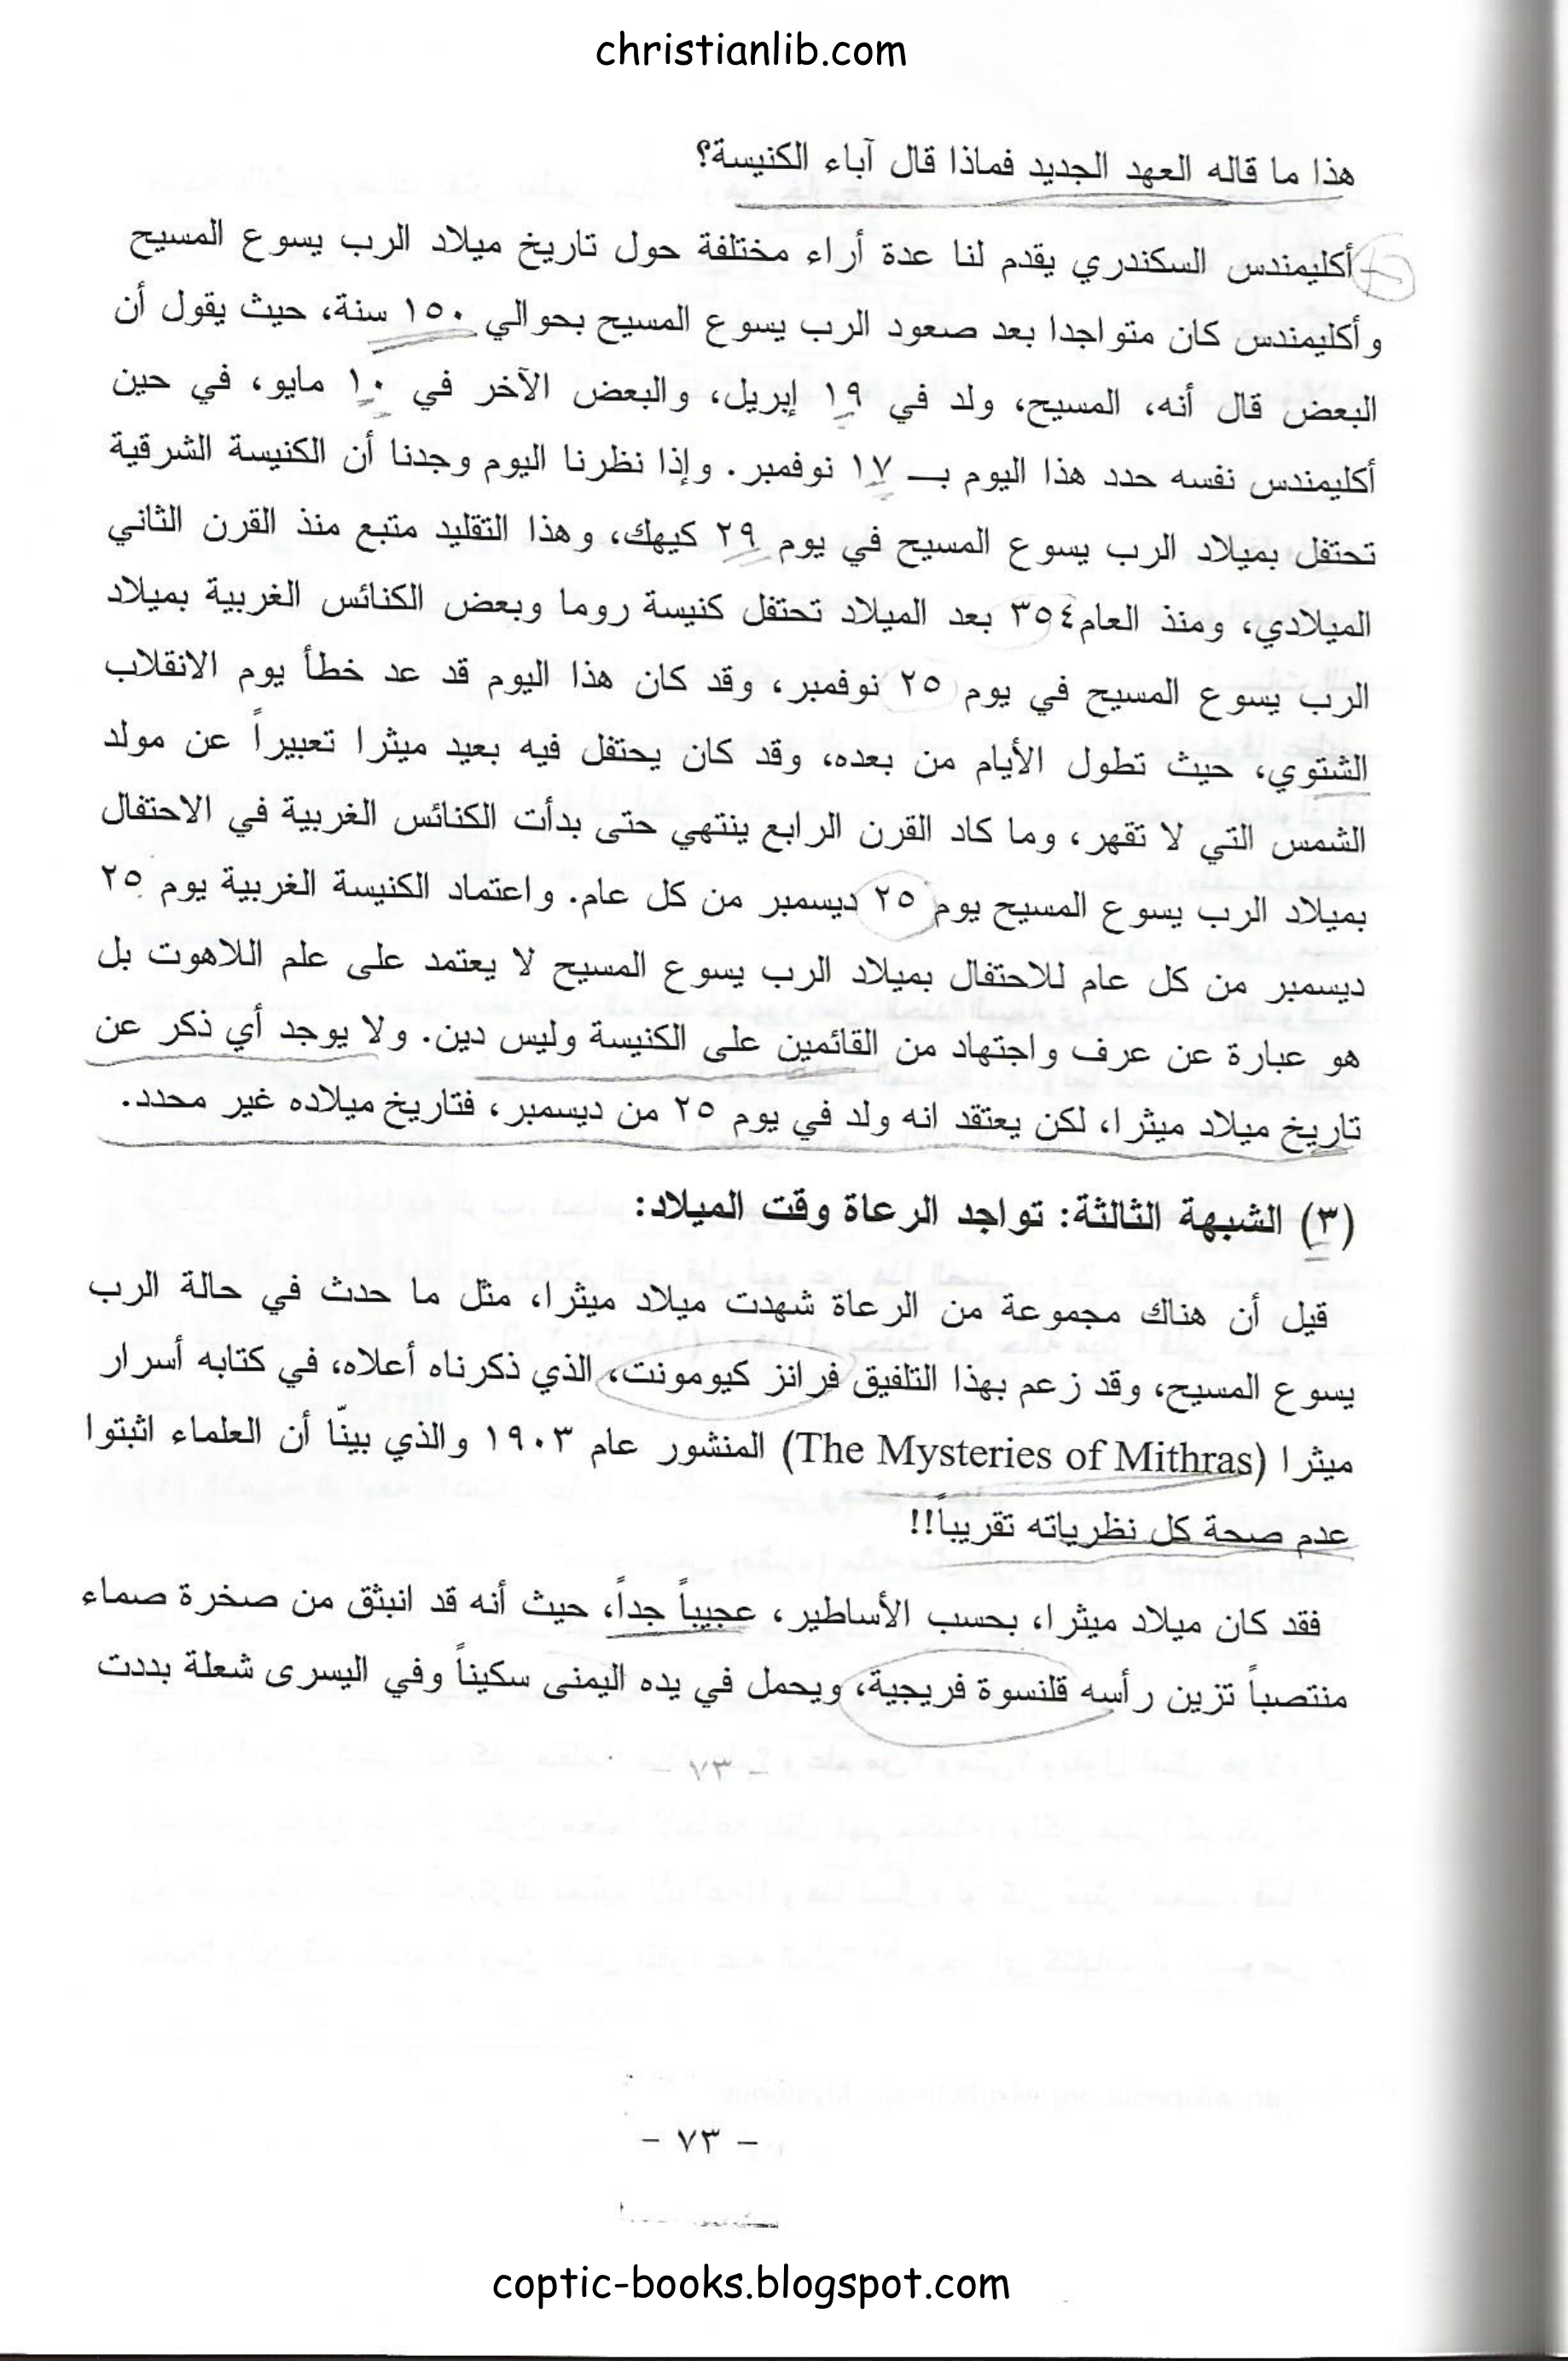 christianlib.com
هذا ما قاله العهد الجديد فماذا قال آباء الكنيسة؟
أكليمندس السكندري يقدم لنا عدة أراء مختلفة حول تاريخ ميلاد الرب يسوع المسيح
وأكليمندس كان متواجدا بعد صعود الرب يسوع المسيح بحوالي ١٥٠ سنة، حيث يقول أن
البعض قال أنه، المسيح، ولد في ١٩ إبريل، والبعض الآخر في ١٠ مايو، في حين
أكليمندس نفسه حدد هذا اليوم بـــ ١٧ نوفمبر. وإذا نظرنا اليوم وجدنا أن الكنيسة الشرقية
تحتفل بميلاد الرب يسوع المسيح في يوم ٢٩ كيهك، وهذا التقليد متبع منذ القرن الثاني
الميلادي، ومنذ العام٣٥٤ بعد الميلاد تحتفل كنيسة روما وبعض الكنائس الغربية بميلاد
الرب يسوع المسيح في يوم ٢٥ نوفمبر، وقد كان هذا اليوم قد عد خطأ يوم الانقلاب
الشتوي، حيث تطول الأيام من بعده، وقد كان يحتفل فيه بعيد ميثرا تعبيراً عن مولد
الشمس التي لا تقهر، وما كاد القرن الرابع ينتهي حتى بدأت الكنائس الغربية في الاحتفال
بميلاد الرب يسوع المسيح يوم ٢٥ ديسمبر من كل عام. واعتماد الكنيسة الغربية يوم ٢٥
ديسمبر من كل عام للاحتفال بميلاد الرب يسوع المسيح لا يعتمد على علم اللاهوت بل
هو عبارة عن عرف واجتهاد من القائمين على الكنيسة وليس دين. ولا يوجد أي ذكر عن
تاريخ ميلاد ميثرا، لكن يعتقد انه ولد في يوم ٢٥ من ديسمبر، فتاريخ ميلاده غير محدد.
(٣) الشبهة الثالثة: تواجد الرعاة وقت الميلاد:
قيل أن هناك مجموعة من الرعاة شهدت ميلاد ميثرا، مثل ما حدث في حالة الرب
يسوع المسيح، وقد زعم بهذا التلفيق فرانز كيومونت، الذي ذكرناه أعلاه، في كتابه أسرار
ميثرا (The Mysteries of Mithras) المنشور عام ١٩٠٣ والذي بينّا أن العلماء اثبتوا
عدم صحة كل نظرياته تقريباً!!
فقد كان ميلاد ميثرا، بحسب الأساطير، عجيباً جداً، حيث أنه قد انبثق من صخرة صماء
منتصباً تزين رأسه قلنسوة فريجية، ويحمل في يده اليمنى سكيناً وفي اليسرى شعلة بددت
- ٧٣ -
coptic-books.blogspot.com